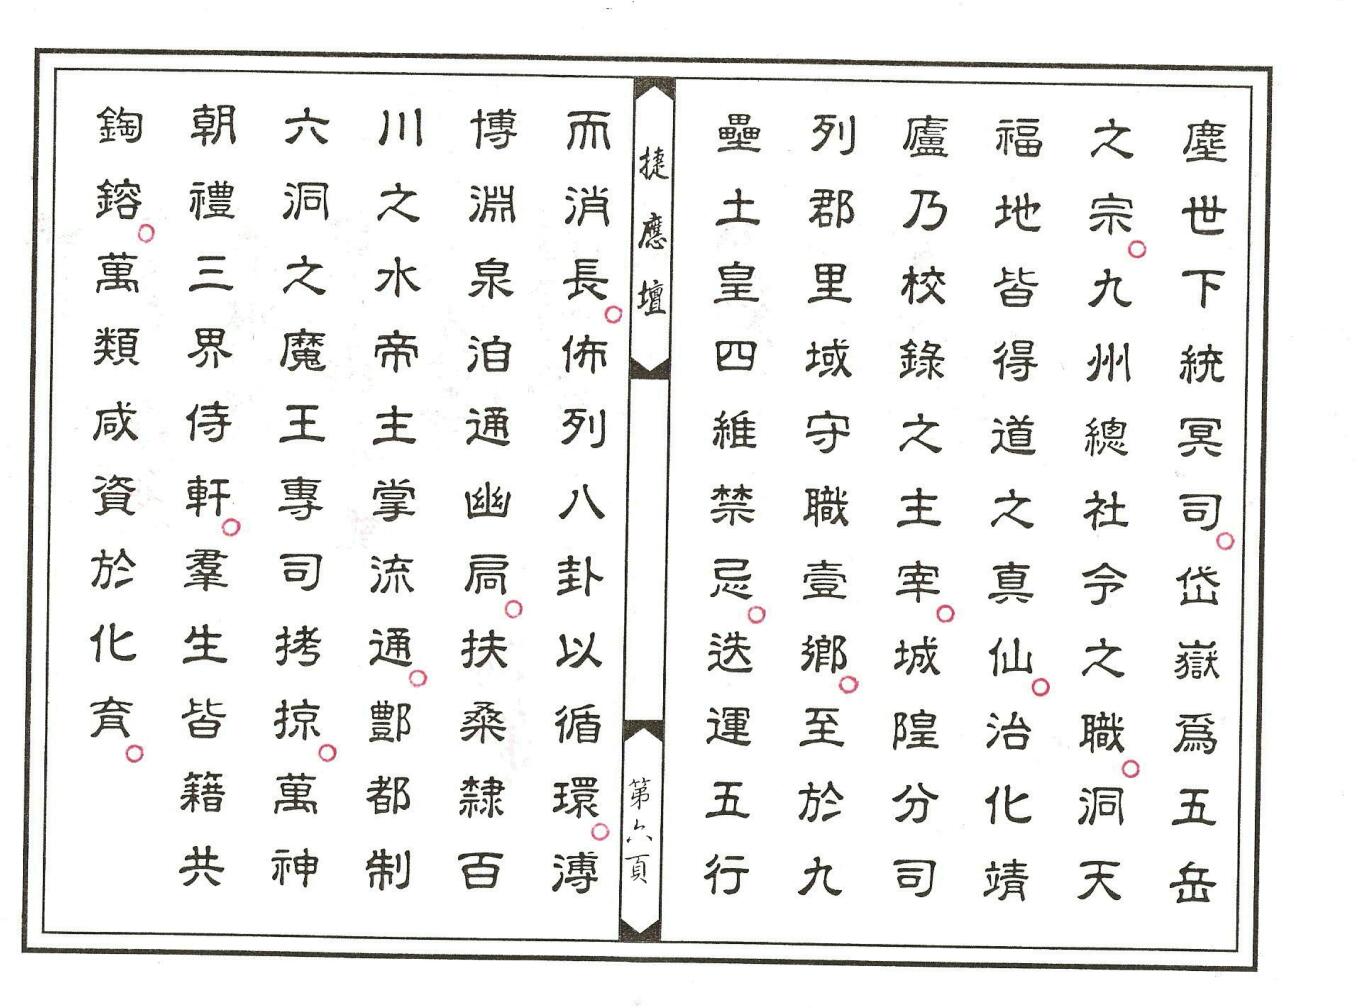 塵世下統冥司。岱嶽爲五岳
之宗。九州總社令之職。洞天
福地皆得道之真仙。治化靖
廬乃校錄之主宰。城隍分司
列郡里域守職壹鄉。至於九
壘土皇四維禁忌。迭運五行
捷應壇
第六頁
而消長。佈列八卦以循環。溥
博淵泉洎通幽扃。扶桑隸百
川之水帝主掌流通。酆都制
六洞之魔王專司拷掠。萬神
朝禮三界侍軒。羣生皆籍共
鋾鎔。萬類咸資於化育。